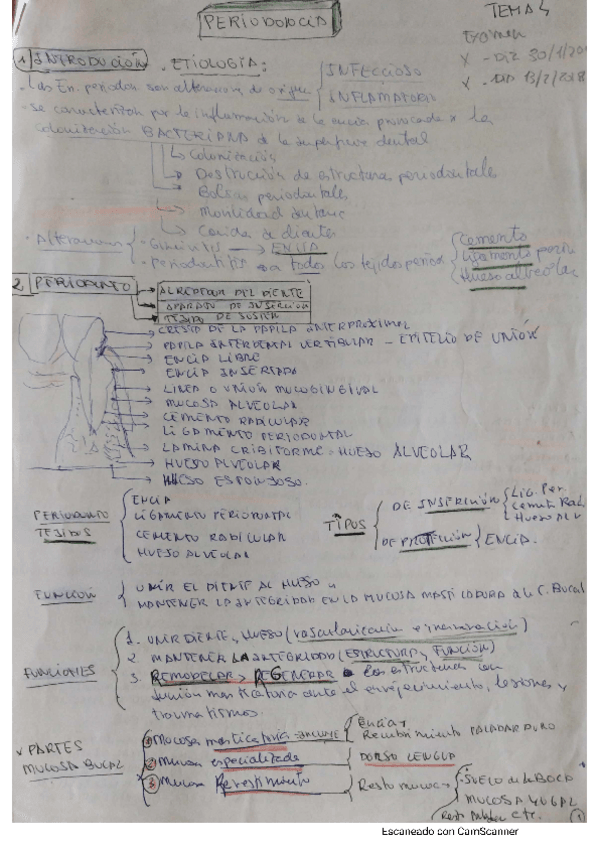 PERIODONCIA
TEMA 4
Examen
X - DIZ 30/1/20
X - 13/2/2018
1) INTRODUCCIÓN. ETIOLOGÍA:
INFECCIOSO
- Las En. periodon son alteracion de origen
INFLAMATORIO
- se caracterizan por la inflamación de la encia provocada x la
colonización BACTERIANA de la superficie dental
Colonización
Destrucción de estructuras periodontales
Bolsas periodontales
Movilidad dentaria
Caida de dientes
Cemento
- Alteraciones
- Gingivitis → ENCIA
Ligamento perio
- Periodontitis → a todos los tejidos period
Hueso alveolar
2. PERIODONTO
ALREDEDOR DEL DIENTE
APARATO DE INSERCIÓN
TEJIDO DE SOSTÉN
CRESTA DE LA PAPILA INTERPROXIMAL
PAPILA INTERDENTAL VESTIBULAR - EPITELIO DE UNIÓN
ENCIA LIBRE
ENCIA INSERTADA
LINEA O UNIÓN MUCOGINGIVAL
MUCOSA ALVEOLAR
CEMENTO RADICULAR
LIGAMENTO PERIODONTAL
LAMINA CRIBIFORME - HUESO ALVEOLAR
HUESO ALVEOLAR
HUESO ESPONJOSO.
PERIODONTO
TEJIDOS
ENCIA
LIGAMENTO PERIODONTAL
CEMENTO RADICULAR
HUESO ALVEOLAR
TIPOS
DE INSERCIÓN
Lig. Per.
Cemento Rad.
Hueso Alv
DE PROTECCIÓN
ENCIA.
FUNCIÓN
UNIR EL DIENTE AL HUESO
MANTENER LA INTEGRIDAD EN LA MUCOSA MASTICADORA C. BUCAL
FUNCIONES
1. UNIR DIENTE y HUESO (vascularización e inervación)
2. MANTENER LA INTEGRIDAD (ESTRUCTURA y FUNCIÓN)
3. REMODELAR y REGENERAR las estructuras con
función masticatoria ante el envejecimiento, lesiones y
traumatismos.
PARTES
MUCOSA BUCAL
1 Mucosa masticatoria - INCLUYE
Encia y
Recubrimiento PALADAR DURO
2 Mucosa especializada
DORSO LENGUA
3 Mucosa Revestimiento
Resto mucosa
SUELO de la BOCA
MUCOSA YUGAL
etc.
1
Escaneado con CamScanner